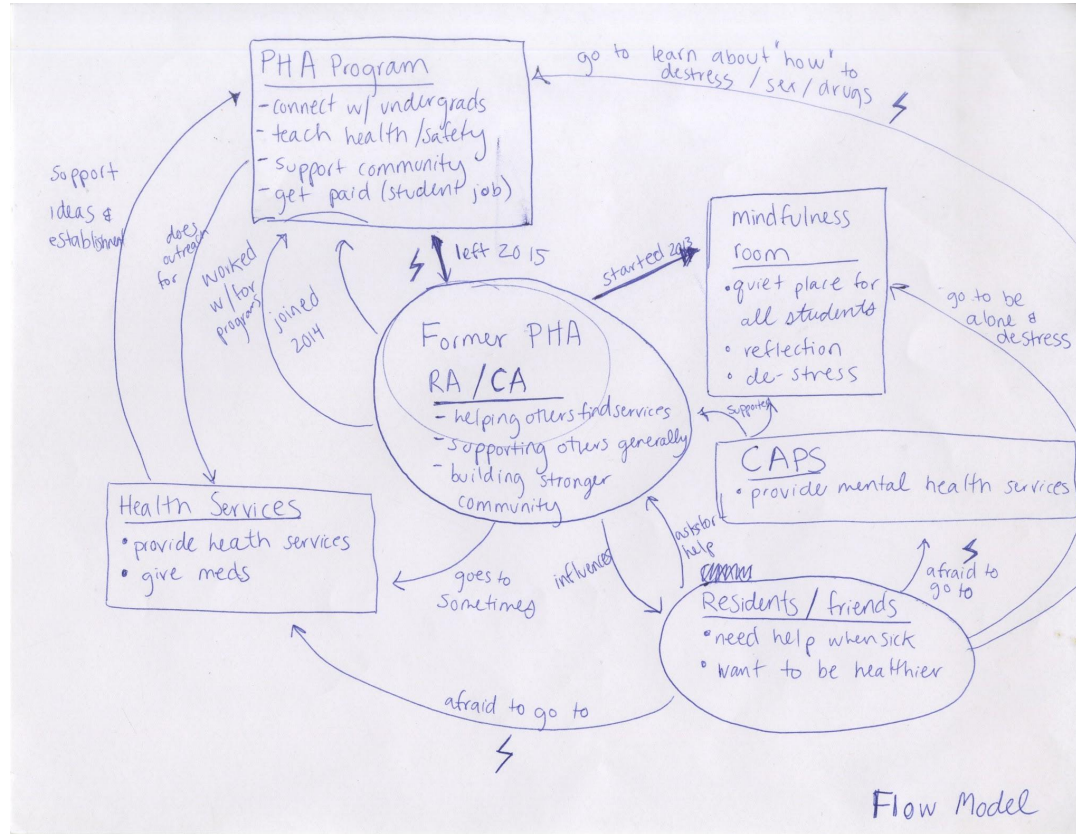 PHA Program
- connect w/ undergrads
- teach health/safety
- support community
- get paid (student job)
go to learn about "how" to
destress / sex / drugs
support
ideas &
establishment
does
outreach
for
worked
w/for
programs
joined
2014
left 2015
started 2013
mindfulness
room
• quiet place for
all students
• reflection
• de-stress
go to be
alone &
destress
Former PHA
RA / CA
- helping others find services
- supporting others generally
- building stronger
community
supported
CAPS
• provide mental health services
Health Services
• provide heath services
• give meds
goes to
sometimes
influences
asks for
help
afraid to
go to
Residents / friends
• need help when sick
• want to be healthier
afraid to go to
Flow Model